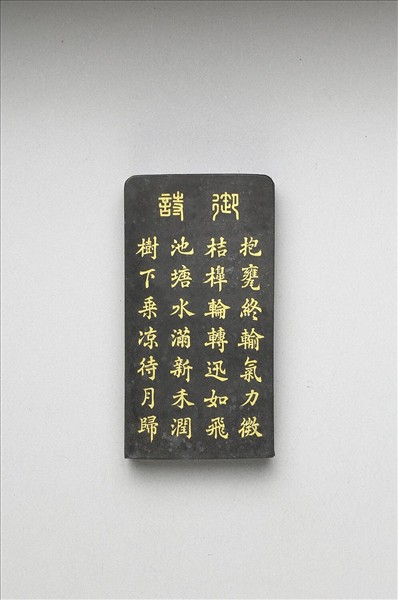 御詩
抱甕終輸氣力微
桔槹輪轉迅如飛
池塘水滿新禾潤
樹下乗凉待月歸